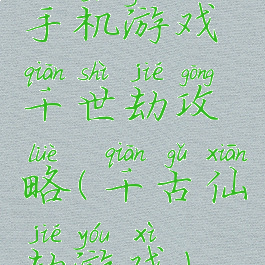 手机游戏
qiān shì jié gōng
千世劫攻
lüè qiān gǔ xiān
略(千古仙
jié yóu xì
劫游戏)